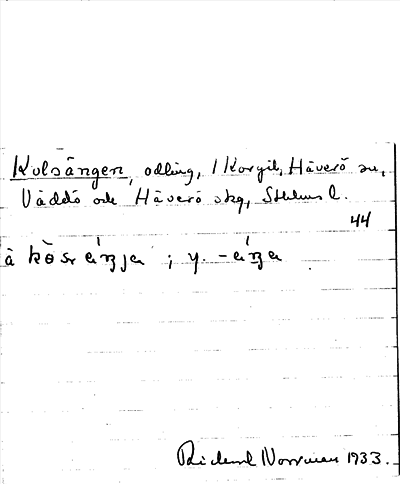 Kulsängen, odling, 1 Korgil, Häverö sn,
Väddö och Häverö skg, Sthlms l.
44
à
; y.
Rickard Norrman 1933.